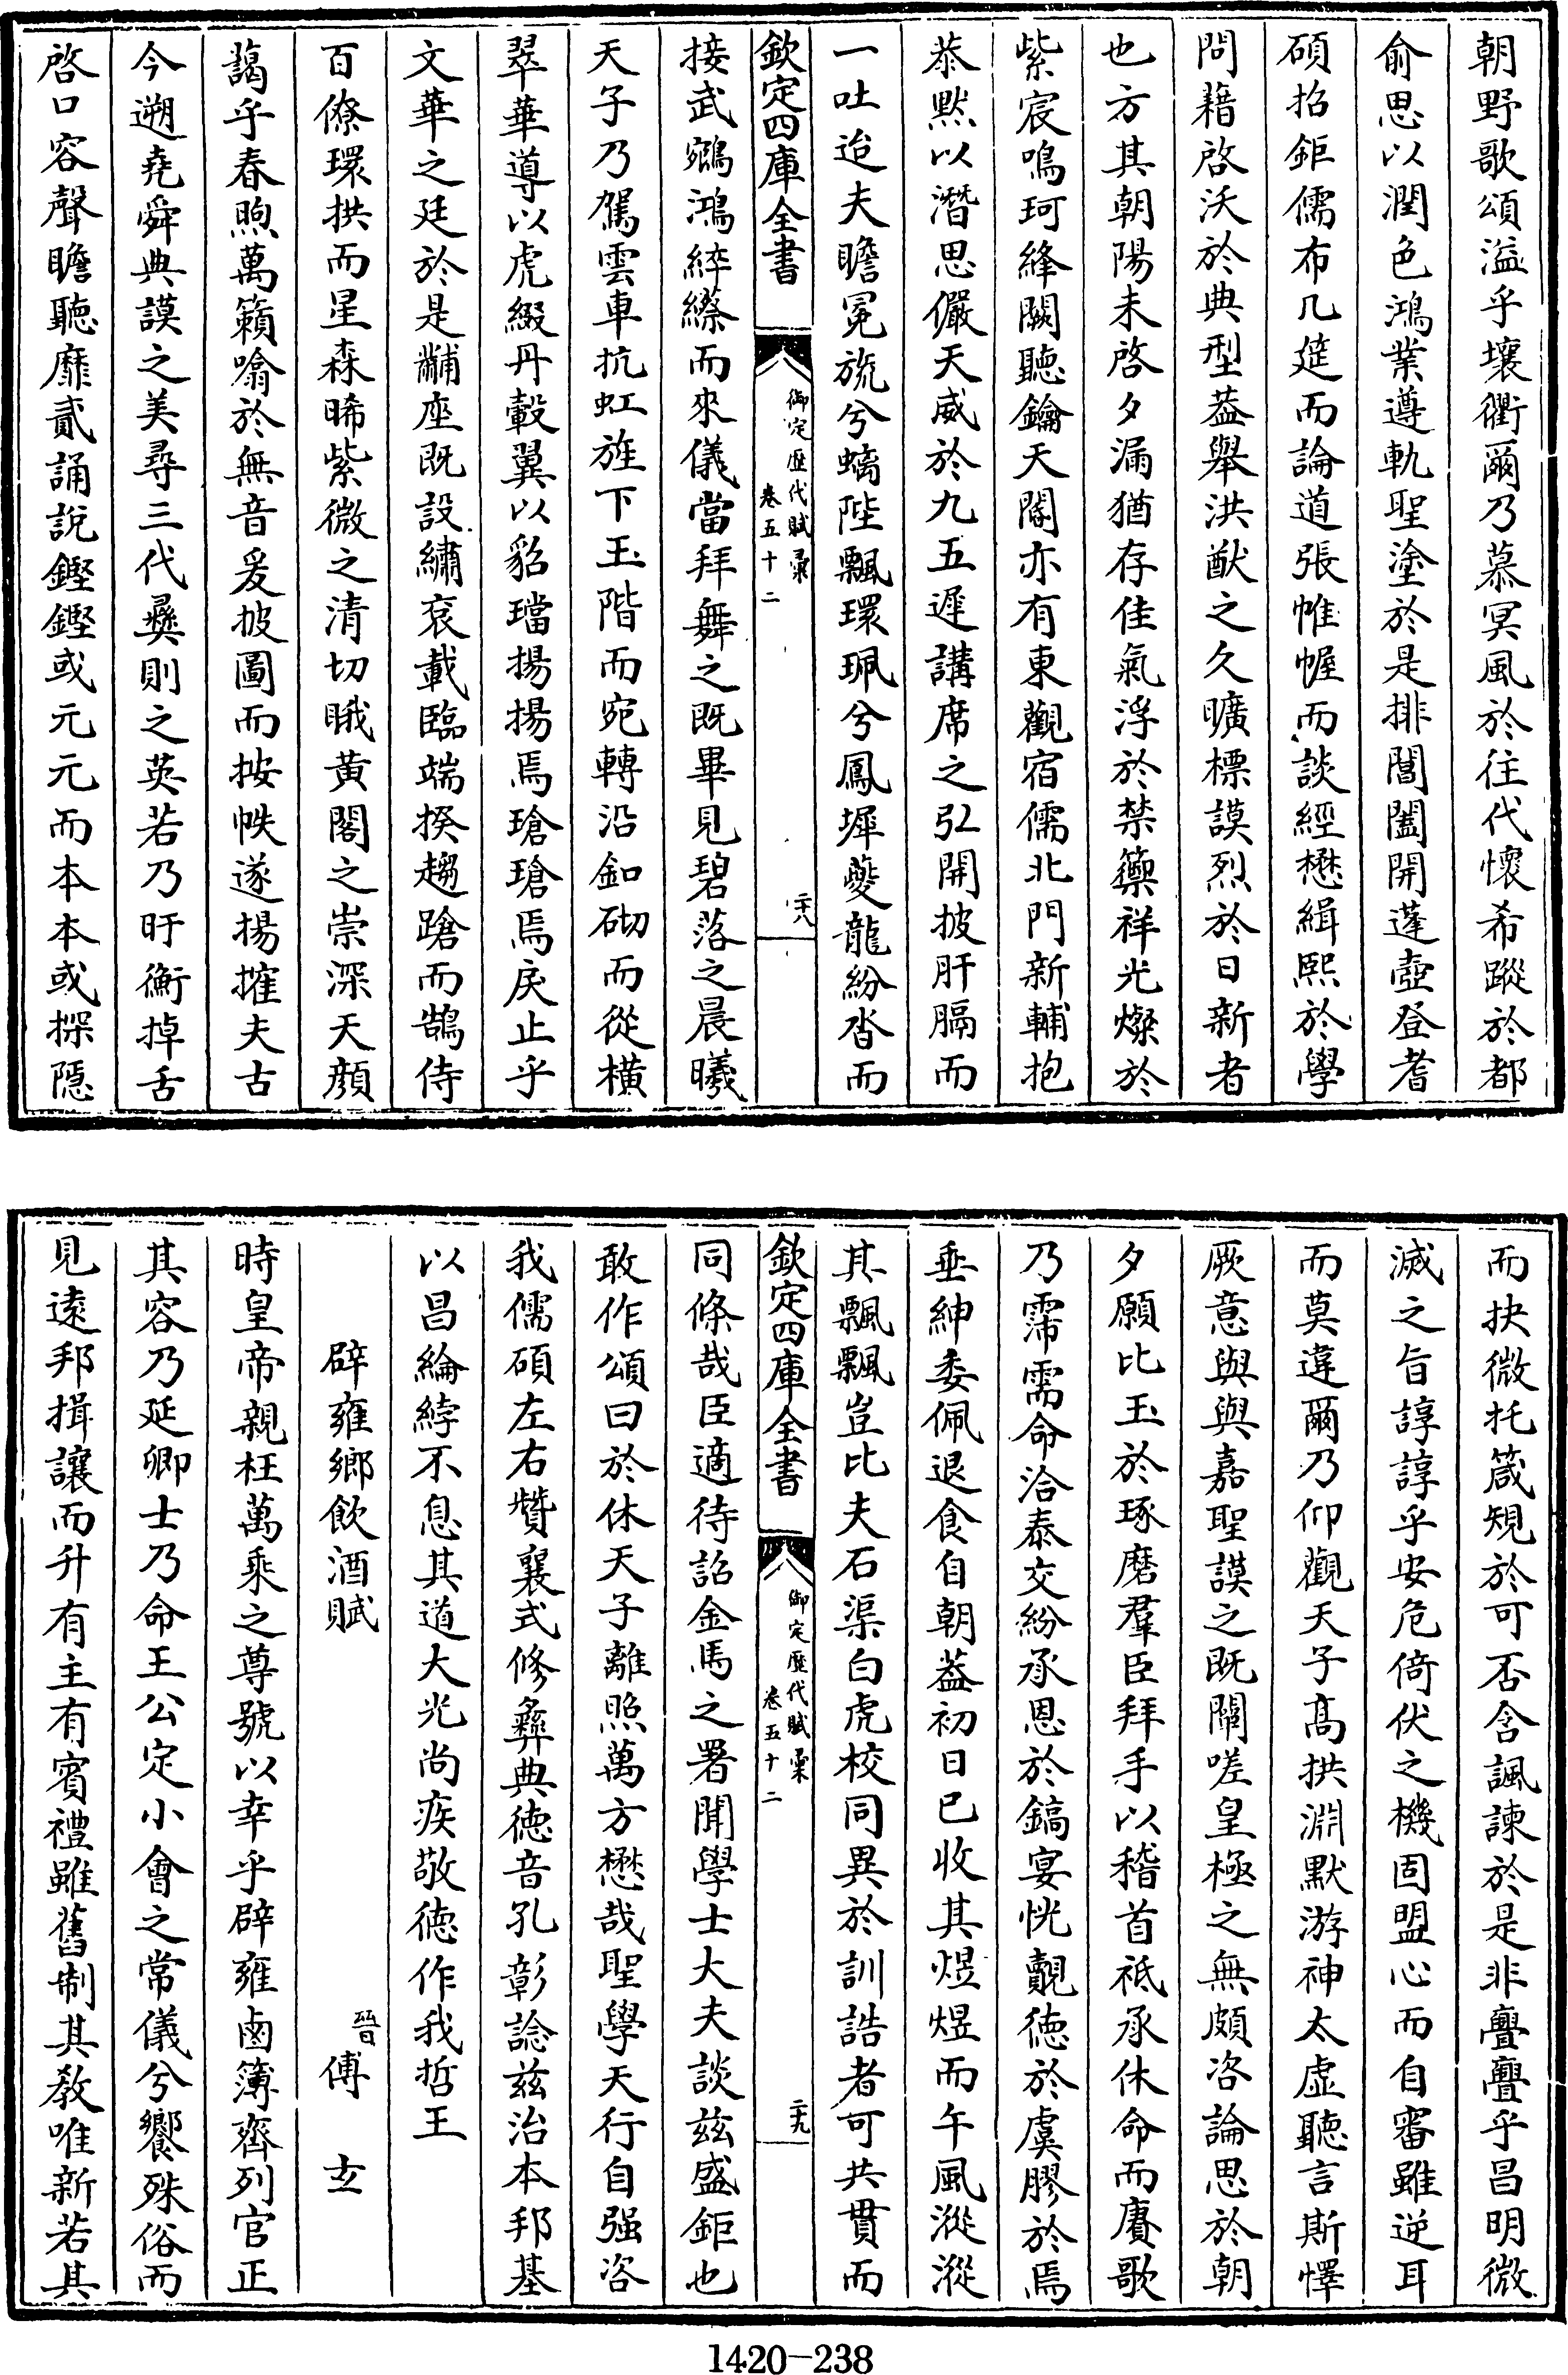 朝野歌頌溢乎壤衢爾乃慕冥風於往代懷希蹤於都
俞思以潤色鴻業遵軌聖塗於是排閶闔開蓬壺登耆
碩招鉅儒布几筵而論道張帷幄而談經懋緝熙於學
問藉啓沃於典型葢舉洪猷之久曠標謨烈於日新者
也方其朝陽未啓夕漏猶存佳氣浮於禁籞祥光燦於
紫宸鳴珂絳闕聽鑰天閽亦有東觀宿儒北門新輔抱
恭默以潛思儼天威於九五遲講席之弘開披肝膈而
一吐迨夫瞻冕旒兮螭陛飄環珮兮鳳墀夔龍紛沓而
欽定四庫全書
御定歷代賦彙
卷五十二
二十八
接武鵷鴻綷縩而來儀當拜舞之既畢見碧落之晨曦
天子乃駕雲車抗虹旌下玉階而宛轉沿釦砌而從橫
翠華導以虎綴丹轂翼以貂璫揚揚焉瑲瑲焉戾止乎
文華之廷於是黼座既設繡衮載臨端揆趨蹌而鵠侍
百僚環拱而星森晞紫微之清切睋黃閣之崇深天顔
藹乎春煦萬籟噏於無音爰披圖而按帙遂揚搉夫古
今遡堯舜典謨之美尋三代彝則之英若乃盱衡掉舌
啓口容聲瞻聽靡貳誦說鏗鏗或元元而本本或探隱
而抉微托箴規於可否含諷諫於是非亹亹乎昌明微
滅之旨諄諄乎安危倚伏之機固盟心而自審雖逆耳
而莫違爾乃仰觀天子髙拱淵默游神太虛聽言斯懌
厥意與與嘉聖謨之既闡嗟皇極之無頗咨論思於朝
夕願比玉於琢磨羣臣拜手以稽首祗承休命而賡歌
乃霈需命洽泰交紛承恩於鎬宴恍覿德於虞膠於焉
垂紳委佩退食自朝葢初日已收其煜煜而午風漎漎
其飄飄豈比夫石渠白虎校同異於訓誥者可共貫而
欽定四庫全書
御定歷代賦彙
卷五十二
二十九
同條哉臣適待詔金馬之署聞學士大夫談茲盛鉅也
敢作頌曰於休天子離照萬方懋哉聖學天行自强咨
我儒碩左右贊襄式修彝典德音孔彰諗茲治本邦基
以昌綸綍不息其道大光尚疾敬德作我哲王
辟雍鄉飲酒賦
晉傅玄
時皇帝親枉萬乘之尊號以幸乎辟雍鹵簿齊列官正
其容乃延卿士乃命王公定小會之常儀兮饗殊俗而
見遠邦揖讓而升有主有賓禮雖舊制其教唯新若其
1420-238